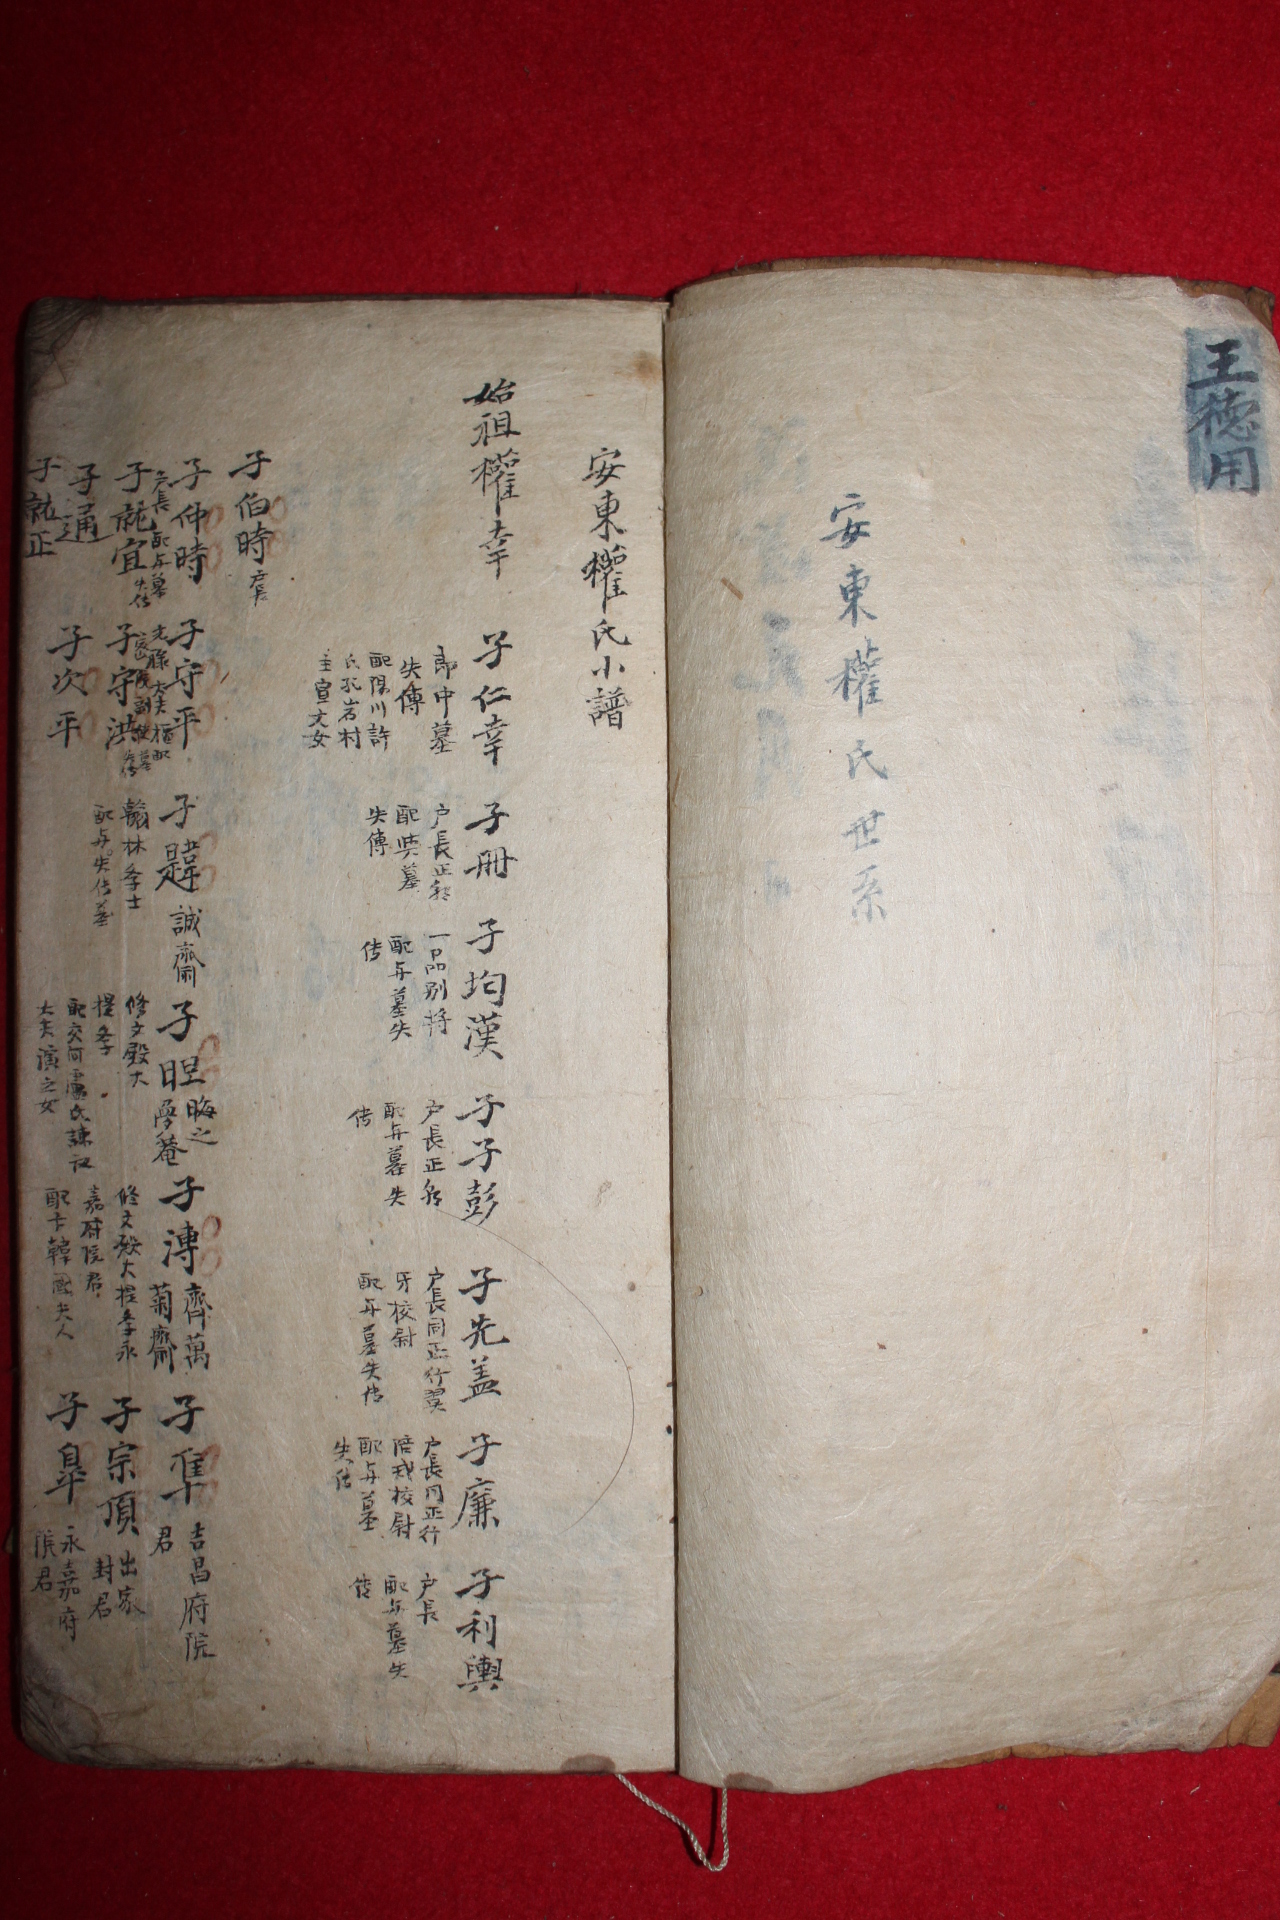 王德用
安東權氏世系
安東權氏小譜
始祖權幸
子仁幸
郎中墓
失傳
配陽川許
氏孔岩村
主宣文女
子冊
户長正
配與墓
失傳
子均漢
一品別将
配与墓失
传
子子彭
户長正
配与墓失
传
子先盖
户長同正行翼
牙校尉
配与墓失传
子廉
户長同正行
陪戎校尉
配与墓
失传
子利輿
户長
配与墓失
传
子伯時
户長
子仲時
户長 配与墓
失传
子就宜
子通
子就正
子守平
子守洪
子次平
子韙 誠齋
翰林李士
配与失传墓
子㫜 晦之
夢菴
修文殿大
提李
配交河盧氏諫議
大夫演之女
子溥 齊萬
菊齋
修文殿大提李永
嘉府院君
配卞韓國夫人
子凖
吉昌府院
君
子宗頂
出家
封君
子皐
永嘉府
院君